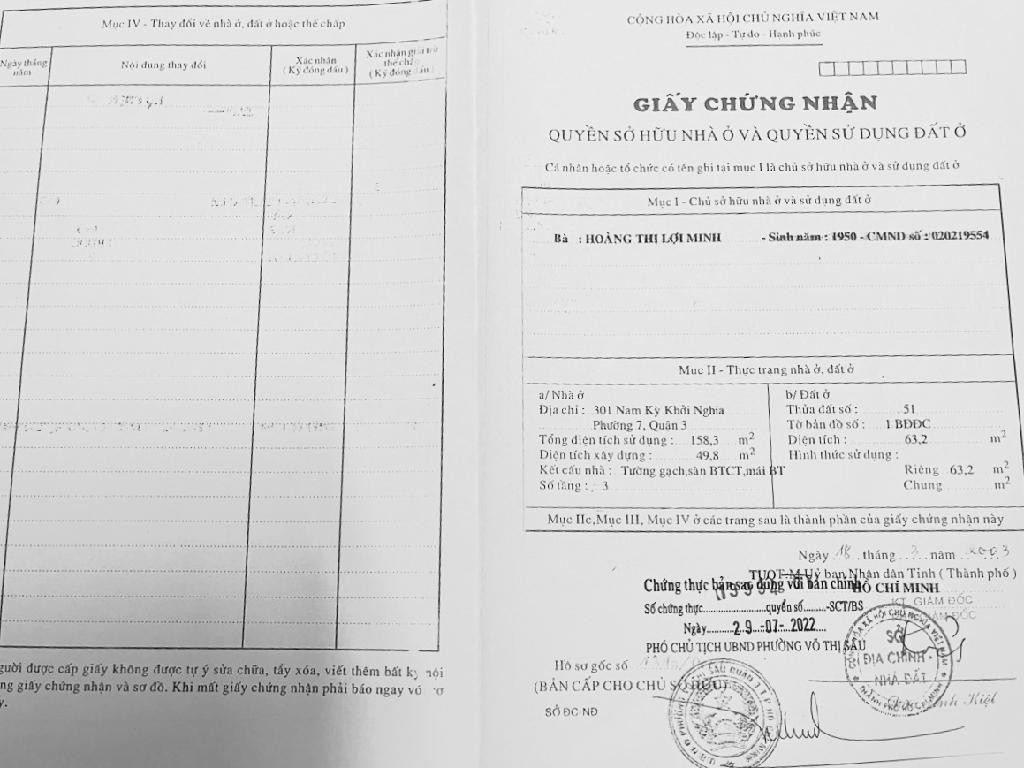 Mục IV - Thay đổi về nhà ở, đất ở hoặc thế chấp
Ngày tháng năm
Nội dung thay đổi
Xác nhận
(Ký đóng dấu)
Xác nhận giải trừ
thế chấp
(Ký đóng dấu)
gười được cấp giấy không được tự ý sửa chữa, tẩy xóa, viết thêm bất kỳ nội
ng giấy chứng nhận và sơ đồ. Khi mất giấy chứng nhận phải báo ngay với cơ
y.
CỘNG HÒA XÃ HỘI CHỦ NGHĨA VIỆT NAM
Độc lập - Tự do - Hạnh phúc
GIẤY CHỨNG NHẬN
QUYỀN SỞ HỮU NHÀ Ở VÀ QUYỀN SỬ DỤNG ĐẤT Ở
Cá nhân hoặc tổ chức có tên ghi tại mục I là chủ sở hữu nhà ở và sử dụng đất ở
Mục I - Chủ sở hữu nhà ở và sử dụng đất ở
Bà : HOÀNG THỊ LỢI MINH - Sinh năm : 1950 - CMND số : 020219554
Mục II - Thực trạng nhà ở, đất ở
a/ Nhà ở
Địa chỉ : 301 Nam Kỳ Khởi Nghĩa
Phường 7, Quận 3
Tổng diện tích sử dụng : 158,3 m²
Diện tích xây dựng : 49,8 m²
Kết cấu nhà : Tường gạch,sàn BTCT,mái BT
Số tầng : 3
b/ Đất ở
Thửa đất số : 51
Tờ bản đồ số : 1 BĐĐC
Diện tích : 63,2 m²
Hình thức sử dụng :
Riêng 63,2 m²
Chung m²
Mục IIc,Mục III, Mục IV ở các trang sau là thành phần của giấy chứng nhận này
Ngày 18 tháng 3 năm 2003
TUQT-M Uỷ ban Nhân dân Tỉnh ( Thành phố )
HỒ CHÍ MINH
KT. GIÁM ĐỐC
Chứng thực bản sao đúng với bản chính
Số chứng thực quyển số -SCT/BS
Ngày 29-07-2022
PHÓ CHỦ TỊCH UBND PHƯỜNG VÕ THỊ SÁU
Hồ sơ gốc số
(BẢN CẤP CHO CHỦ SỞ HỮU)
SỞ ĐC NĐ
SỞ
ĐỊA CHÍNH -
NHÀ ĐẤT
Kiệt